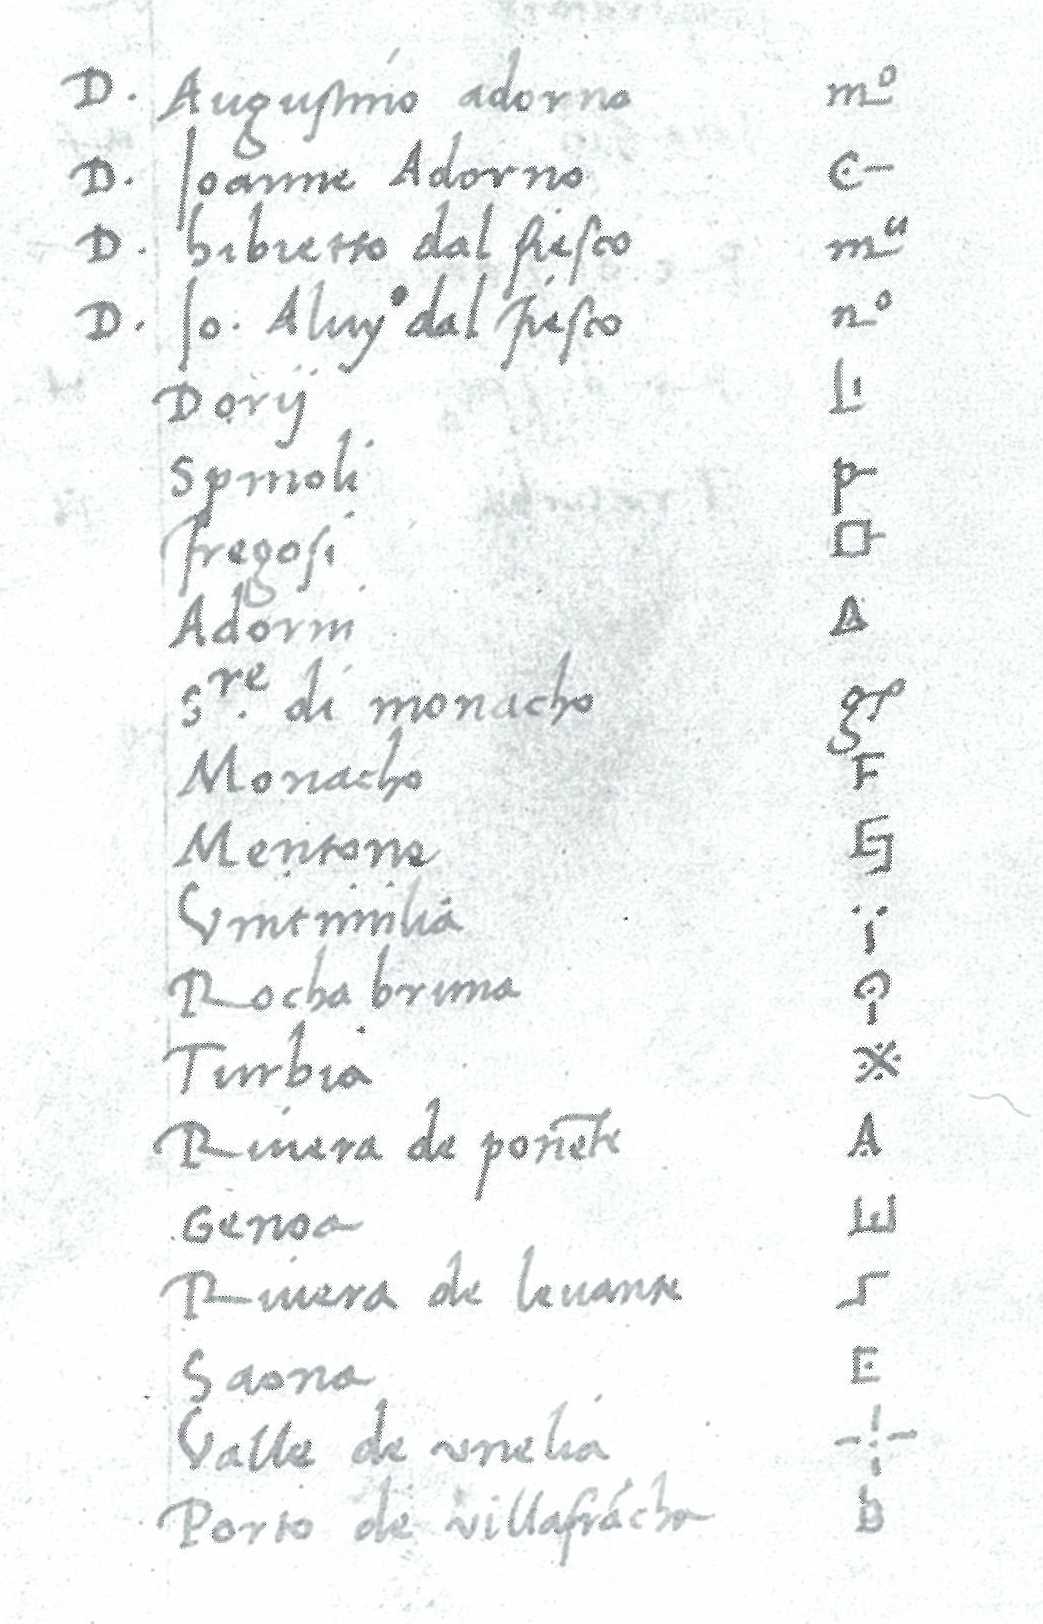 D. Augustino adorno mº
D. Joanne Adorno
D. hibietto dal fiesco mu
D. Jo. Aluyº dal fiesco nº
Dorij
Spinoli
fregosi
Adorni
Sre. di monacho
Monacho F
Mentono
Vintimilia
Rocha bruma
Turbia
Riuera de ponēte A
Genoa
Riuera de leuante
Saona E
Valle de vnelia
Porto de villafrácha b